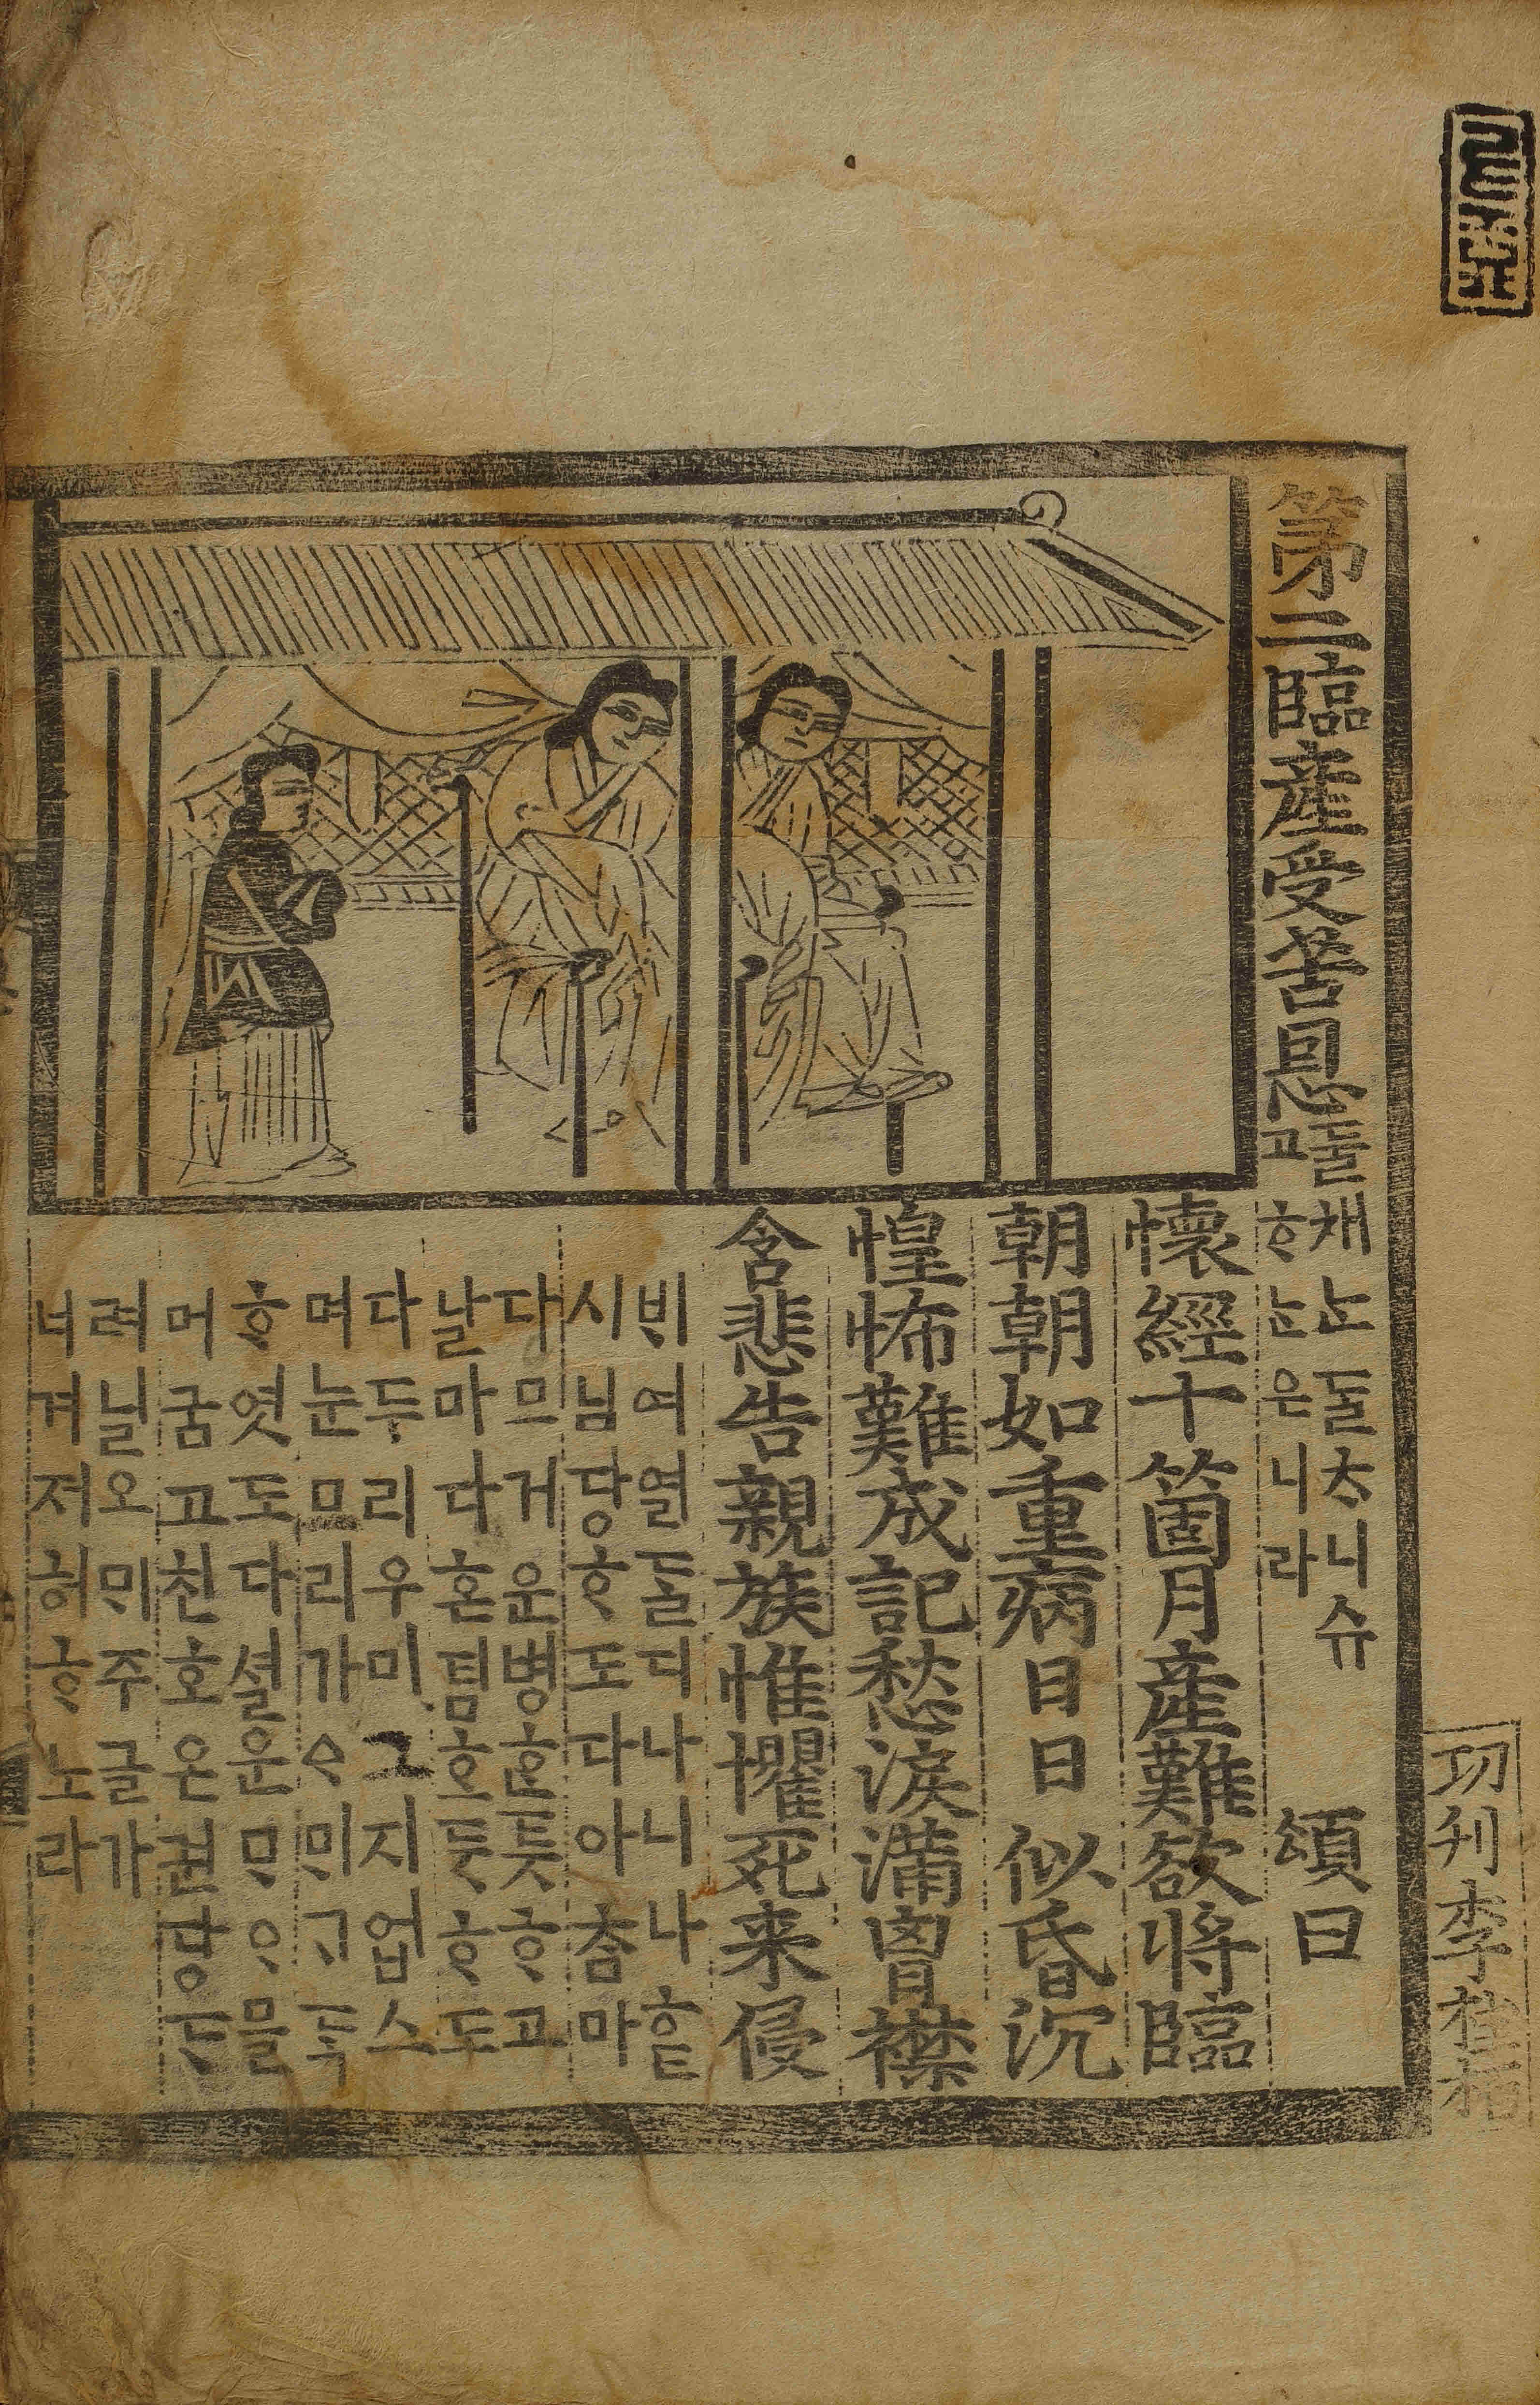 刊李
第二臨産受苦恩
둘채ᄂᆞᆫ둘ᄎᆞ니슈
고ᄒᆞᄂᆞᆫ은니라
頌曰
懷經十箇月産難欲將臨
朝朝如重病日日似昏沉
惶怖難成記愁淚滿胷襟
含悲告親族惟懼死来侵
ᄇᆡ여열돌디나니나
시님당ᄒᆞ도다아ᄎᆞᆷ마
다므거운병ᄒᆞᆫ듯ᄒᆞ고
날마다혼팀ᄒᆞᆫ듯ᄒᆞ도
다두리우미그지업스
며눈므리가ᄉᆞᄆᆡᄀᆞᄃᆞᆨ
ᄒᆞ엿도다셜운ᄆᆞᄋᆞ믈
머굼고친ᄒᆞ온권당ᄃᆞ
려닐오ᄆᆡ주글가
너겨저허ᄒᆞ노라